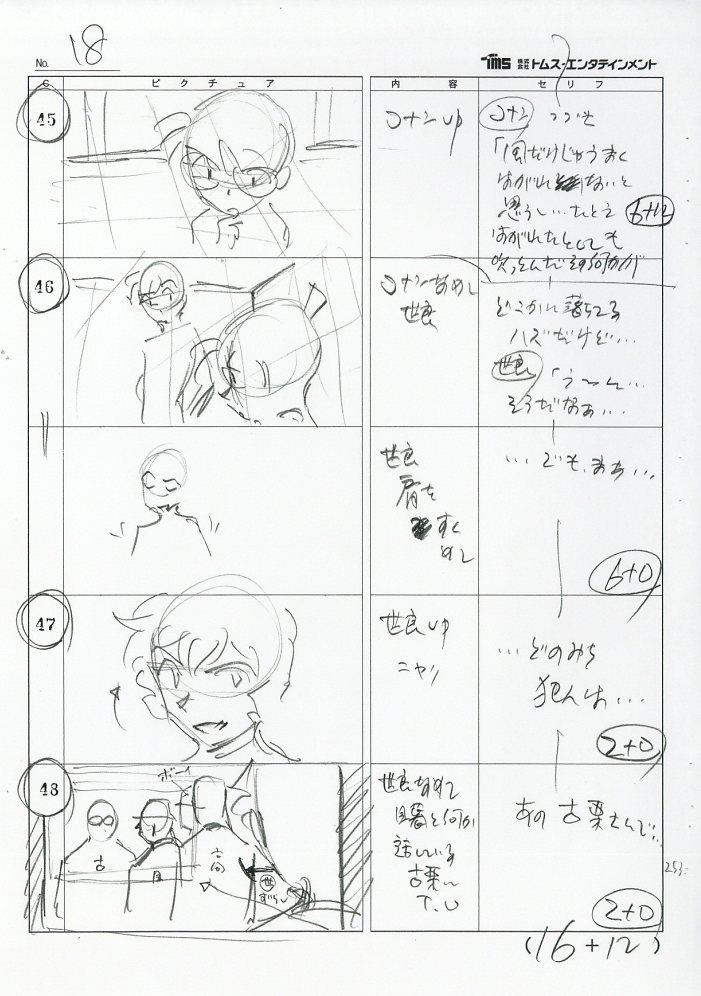 No. 18
TMS 株式会社 トムス・エンタテインメント
C ピクチュア 内容 セリフ
45
コナンup
コナン つづき
「風だけじゃうまく
はがれないと
思うし…たとえ
はがれたとしても
吹っとんだその何かが
6+12
46
コナンなめし
世良
どこかに落ちてる
ハズだけど…
世良 「う〜ん…
そうだなぁ…
世良
肩を
すく
めて
…でも、まぁ…
6+0
47
世良up
ニヤリ
…どのみち
犯人は…
2+0
48
ボーイ
古
目
高
世
世良なめて
目暮と何か
話している
古栗
T.U
あの 古栗さんで…
2+0
(16+12)